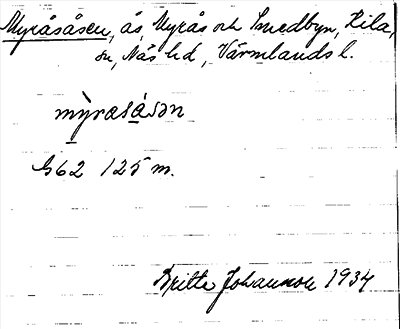 Myråsåsen, ås, Myrås och Smedbyn, Kila,
sn, Näs hd, Värmlands l.
my̱rasa̱sən
G62 125 m.
Britta Johansson 1934